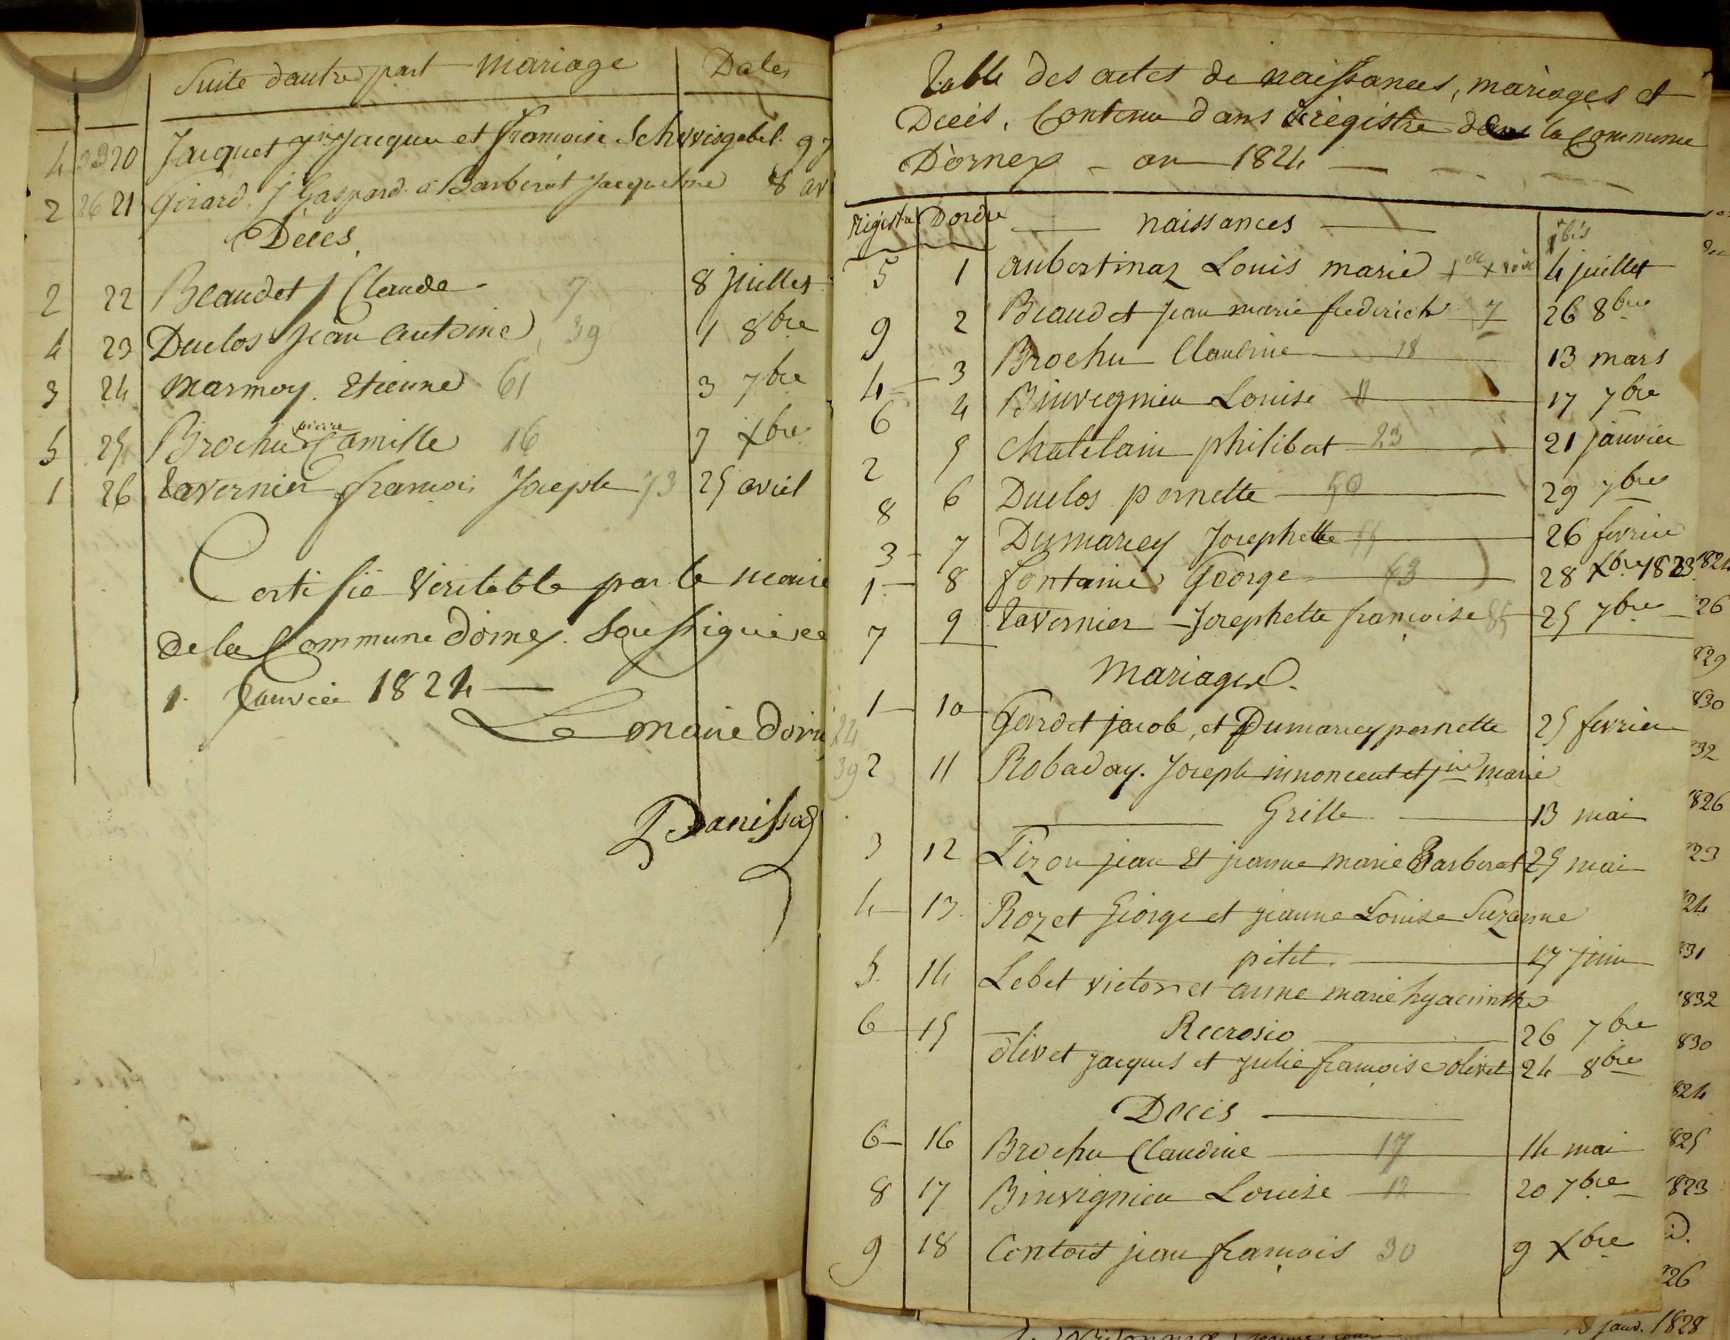 Suite dautre part mariage Dates
4 20 Jacquet Jn Jacques et francoise Schwisgebel 9
2 26 21 Girard J Gaspard et Barberat Jacqueline 8 av
Décés
2 22 Beaudet J Claude 7 8 juillet
4 23 Duclos Jean antoine 39 1 8bre
3 24 Marmoy Etienne 61 3 7bre
pierre
5 25 Brochu Camille 16 7 Xbre
1 26 Tavernier francois Joseph 73 25 avril
Certifié véritable par le maire
de la Commune dornex Soussigné ce
1 Janvier 1824
Le maire dorn
Danissa
Table des actes de naissances, mariages et
Décés, Contenu dans le régistre de la Commune
D'ornex - an 1824
Régistre Dordre naissances
5 1 aubertinaz Louis marie 4 juillet
9 2 Beaudet jean marie frederich 7 26 8bre
4 3 Brochu Claudine 18 13 mars
6 4 Binvignieu Louise 11 17 7bre
2 5 Chatelain philibert 23 21 janvier
8 6 Duclos pernette 50 29 7bre
3 7 Dumarcey Josephette 26 fevrier
1 8 fontaine George 63 28 Xbre 1823
7 9 Tavernier Josephette françoise 85 25 7bre
Mariages
1 10 Gardet jacob, et Dumarcey pernette 25 fevrier
24
39 2 11 Robaday Joseph innoncent et jne marie
Grille 13 mai
3 12 Lizon jean Et jeanne marie Barberat 25 mai
4 13 Rozet George et jeanne Louise Suzanne
petit 17 juin
5 14 Lebet victor et anne marie hyacinthe
Recrosio 26 7bre
6 15 olivet jacques et julie francoise olivet 24 8bre
Décés
6 16 Brochu Claudine 17 14 mai
8 17 Binvignieu Louise 12 20 7bre
9 18 Contois jean francois 30 9 Xbre
1824
26
829
830
832
1826
23
24
831
1832
830
824
825
1823
26
8 janv. 1828